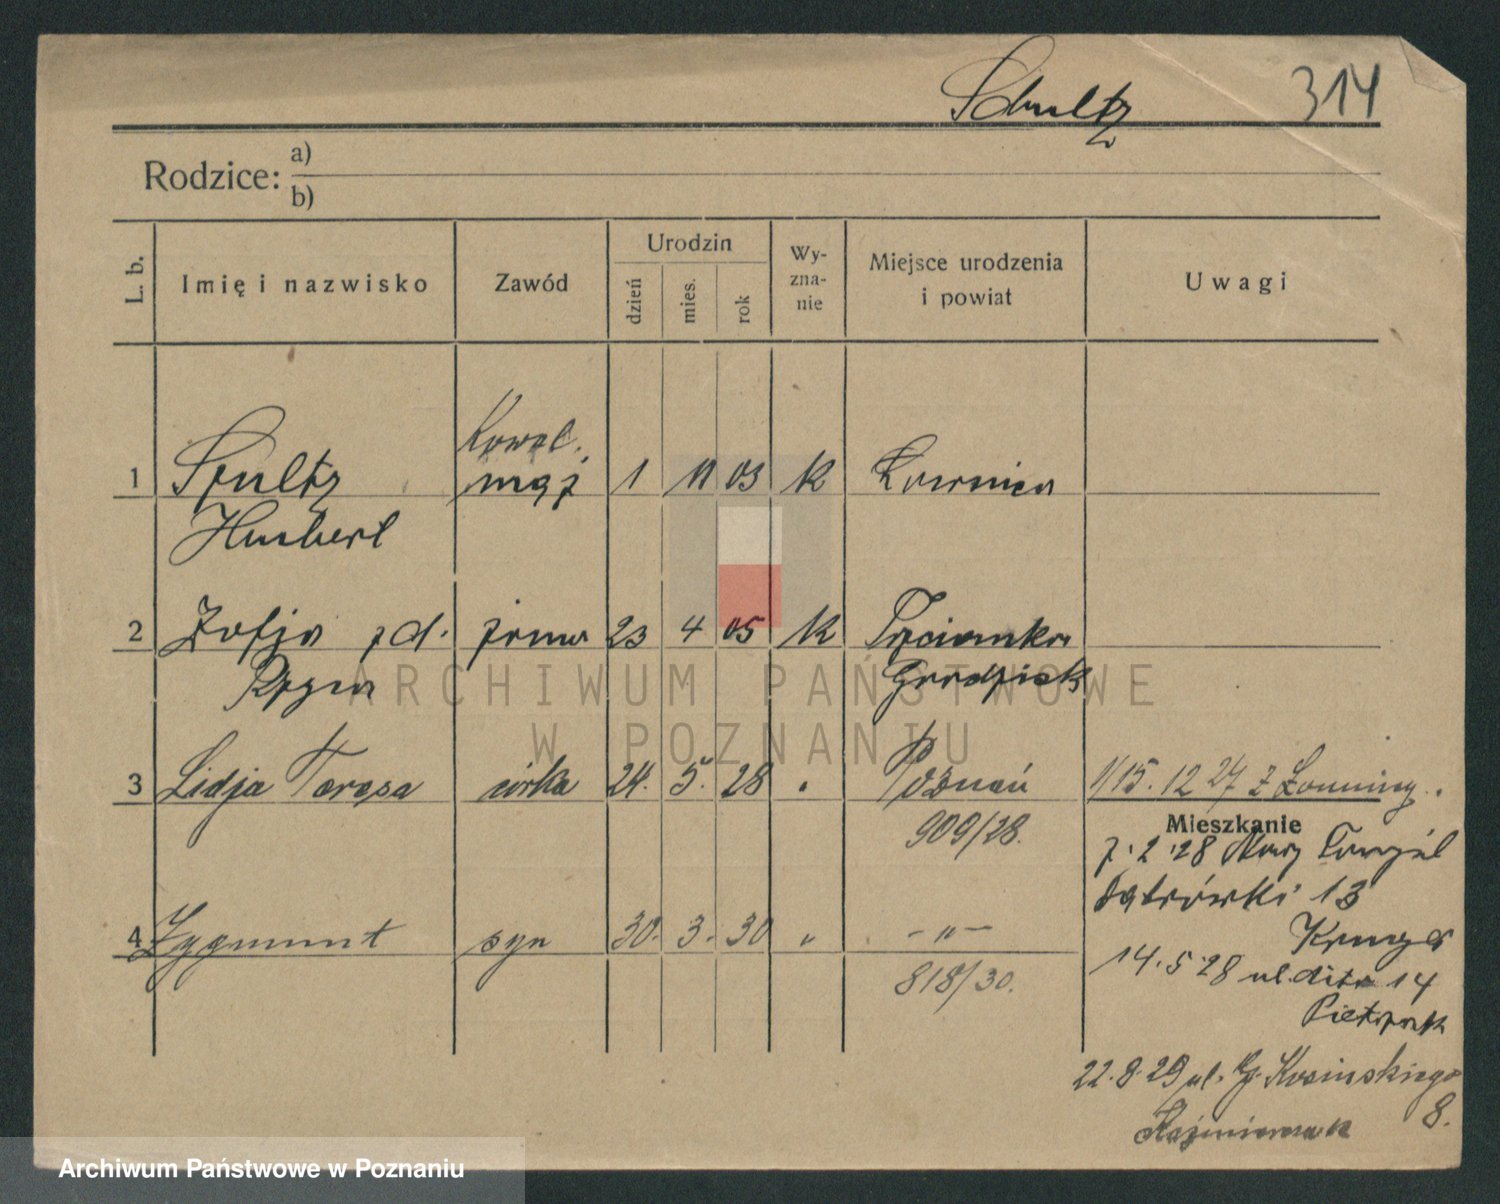 Schultz
314
Rodzice:
a)
b)
L. b.
Imię i nazwisko
Zawód
Urodzin
dzień
mies.
rok
Wy-
zna-
nie
Miejsce urodzenia
i powiat
Uwagi
Kowal.
1 Szultz mąż 1 11 03 K
Hubert
2 Zofja z d. żona 23 4 05 K Trzcianka
Grodzisk
3 Lidja Teresa córka 24. 5. 28 " Poznań 1/15. 12 27 z
909/28.
Mieszkanie
7. 2. 28 Nowy
Dąbrówki 13
4 Zygmunt syn 30. 3. 30 " - " -
818/30.
Kruger
14. 5 28 ul. dito 14
Pietrzak
22. 8. 29 ul. G. Kosińskiego
8.
Kaźmierczak
ARCHIWUM PAŃSTWOWE
W POZNANIU
Archiwum Państwowe w Poznaniu